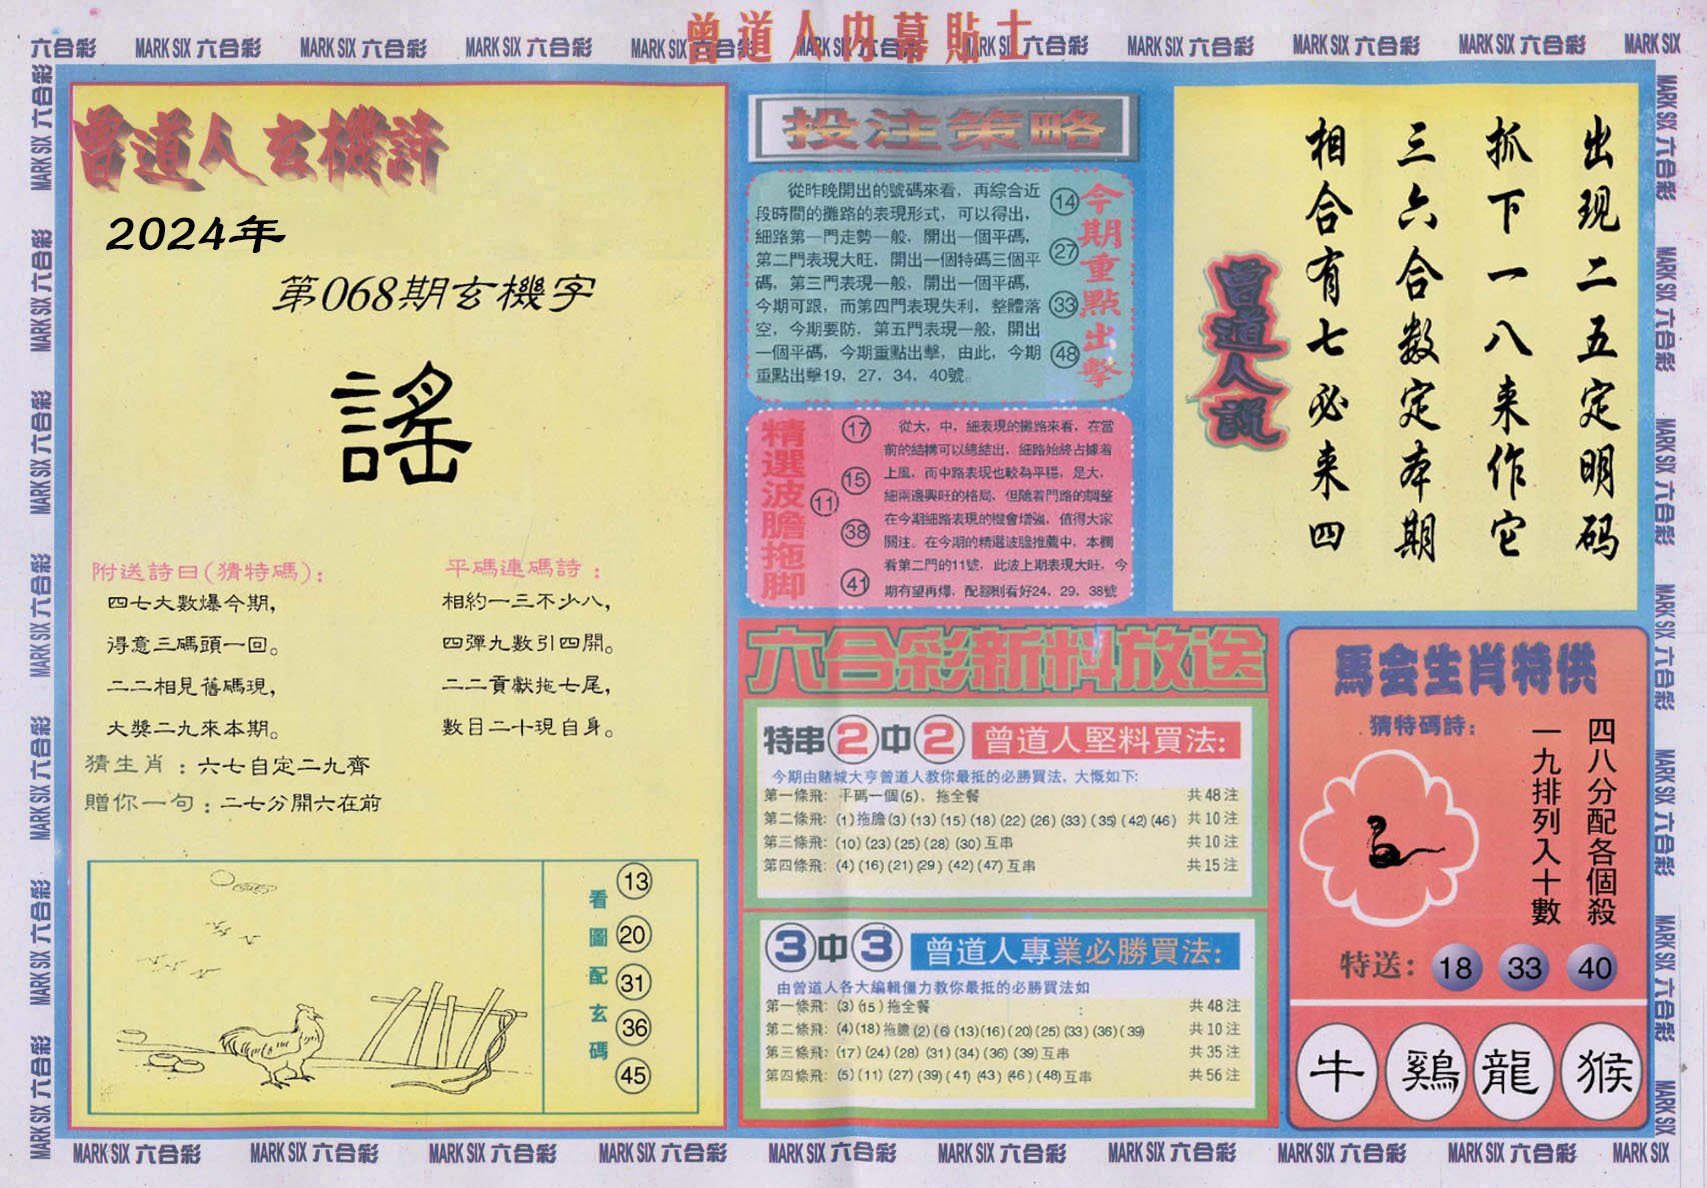 曾道人内幕貼士
六合彩 MARK SIX 六合彩 MARK SIX 六合彩 MARK SIX 六合彩 MARK SIX 六合彩 MARK SIX 六合彩 MARK SIX 六合彩 MARK SIX 六合彩 MARK SIX 六合彩 MARK SIX
曾道人玄機詩
2024年
第068期玄機字
謠
附送詩曰(猜特碼):
四七大數爆今期,
得意三碼頭一回。
二二相見舊碼現,
大獎二九來本期。
平碼連碼詩:
相約一三不少八,
四彈九數引四開。
二二貢獻拖七尾,
數目二十現自身。
猜生肖:六七自定二九齊
贈你一句:二七分開六在前
看圖配玄碼
13
20
31
36
45
投注策略
從昨晚開出的號碼來看，再綜合近
段時間的攤路的表現形式，可以得出，
細路第一門走勢一般，開出一個平碼，
第二門表現大旺，開出一個特碼三個平
碼，第三門表現一般，開出一個平碼，
今期可跟，而第四門表現失利，整體落
空，今期要防，第五門表現一般，開出
一個平碼，今期重點出擊，由此，今期
重點出擊19，27，34，40號。
今期重點出擊
14
27
33
48
精選波膽拖脚
17
15
11
38
41
從大，中，細表現的攤路來看，在當
前的結構可以總結出，細路始終占據着
上風，而中路表現也較為平穩，是大，
細兩邊興旺的格局，但隨着門路的調整
在今期細路表現的機會增強，值得大家
關注。在今期的精選波膽推薦中，本欄
看第二門的11號，此波上期表現大旺，今
期有望再爆，配腳則看好24，29，38號
曾道人説
出现二五定明码
抓下一八来作它
三六合数定本期
相合有七必来四
六合彩新料放送
特串2中2 曾道人堅料買法:
今期由賭城大亨曾道人教你最抵的必勝買法，大慨如下:
第一條飛: 平碼一個(5)，拖全餐 共48注
第二條飛: (1)拖膽(3)(13)(15)(18)(22)(26)(33)(35)(42)(46) 共10注
第三條飛: (10)(23)(25)(28)(30)互串 共10注
第四條飛: (4)(16)(21)(29)(42)(47)互串 共15注
3中3 曾道人專業必勝買法:
由曾道人各大編輯僵力教你最抵的必勝買法如
第一條飛: (3)(15)拖全餐 : 共48注
第二條飛: (4)(18)拖膽(2)(6)(13)(16)(20)(25)(33)(36)(39) 共10注
第三條飛: (17)(24)(28)(31)(34)(36)(39)互串 共35注
第四條飛: (5)(11)(27)(39)(41)(43)(46)(48)互串 共56注
馬会生肖特供
猜特碼詩:
四八分配各個殺
一九排列入十數
特送: 18 33 40
牛 鷄 龍 猴
MARK SIX 六合彩 MARK SIX 六合彩 MARK SIX 六合彩 MARK SIX 六合彩 MARK SIX 六合彩 MARK SIX 六合彩 MARK SIX 六合彩 MARK SIX 六合彩 MARK SIX 六合彩 MARK SIX